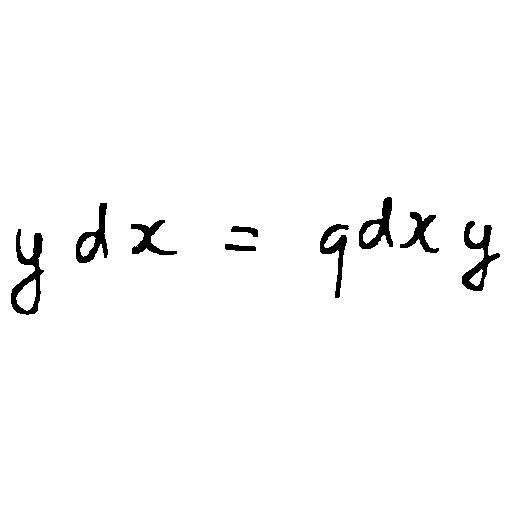 y dx = q dx y